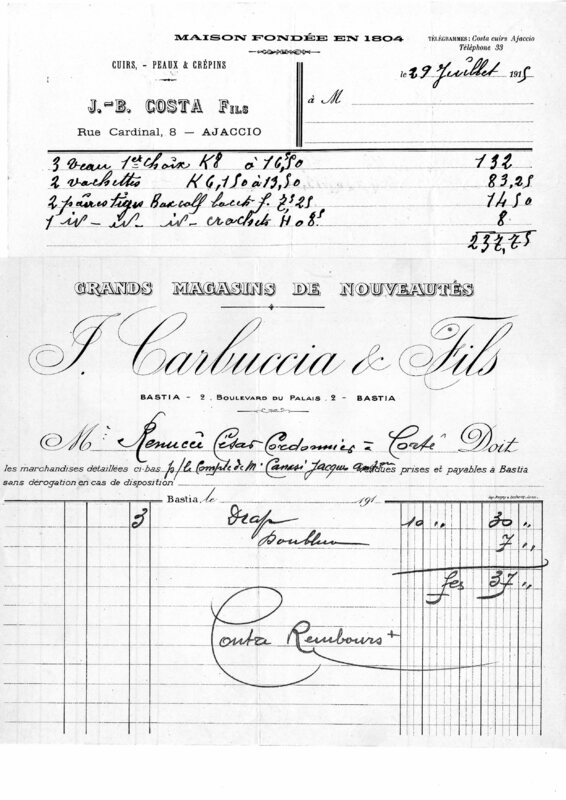 MAISON FONDÉE EN 1804
TÉLÉGRAMMES: Costa cuirs Ajaccio
Téléphone 33
CUIRS, - PEAUX & CRÉPINS
J.-B. COSTA FILS
Rue Cardinal, 8 — AJACCIO
le 29 Juillet 1915
à M
3 veau 1er choix K8 à 16,50 132
2 vachettes K 6,150 à 13,50 83,25
2 paires tiges Boxcalf lacets f. 7,25 14 50
1 id - id - id - crochets H 8
237,75
GRANDS MAGASINS DE NOUVEAUTÉS
J. Carbuccia & Fils
BASTIA - 2, BOULEVARD DU PALAIS, 2 - BASTIA
Mr Renucci César Cordonnier à Corté Doit
les marchandises détaillées ci-bas p/ le Compte de Mr Canasi Jacques vendues prises et payables à Bastia
sans dérogation en cas de disposition
Bastia, le 191
3 Drap 10 " 30 "
Doublure 7 "
fcs 37 "
Contre Rembours+